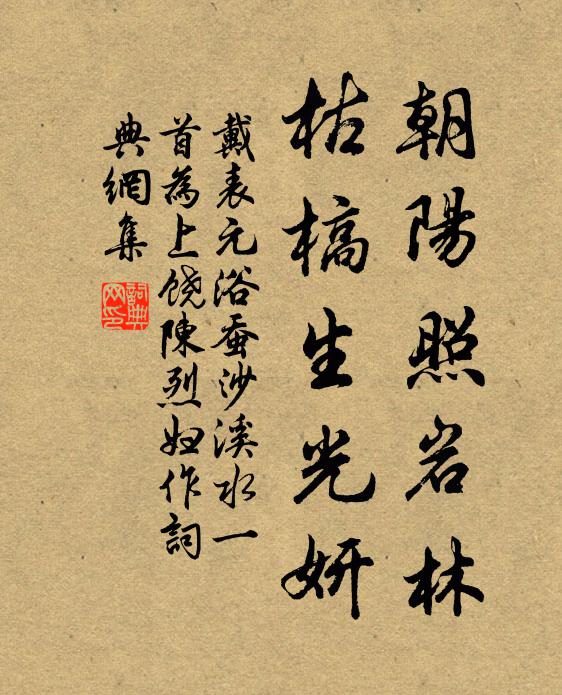 朝陽照岩林
枯槁生光妍
戴表元浴蚕沙溪水一
首為上饶陳烈妇作詞
典網集
詞典
网印